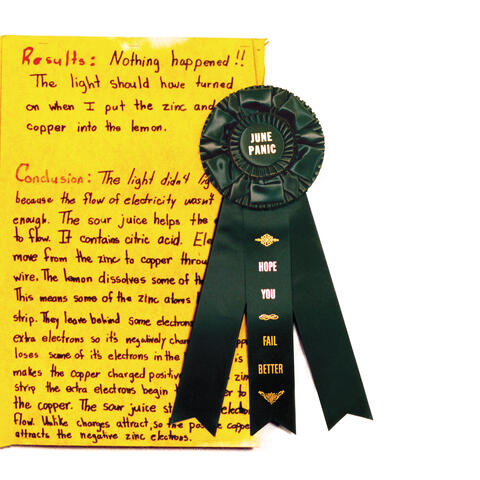 Results: Nothing happened!!
The light should have turned
on when I put the zinc and
copper into the lemon.
Conclusion: The light didn't
because the flow of electricity wasn't
enough. The sour juice helps the
to flow. It contains citric acid.
move from the zinc to copper
wire. The lemon dissolves some of
This means some of the zinc atoms
strip. They leave behind some
extra electrons so it's negatively
loses some of it's electrons in the
makes the copper charged
strip the extra electrons begin to
the copper. The sour juice
flow. Unlike charges attract, so the
attracts the negative zinc electrons.
JUNE
PANIC
HOPE
YOU
FAIL
BETTER